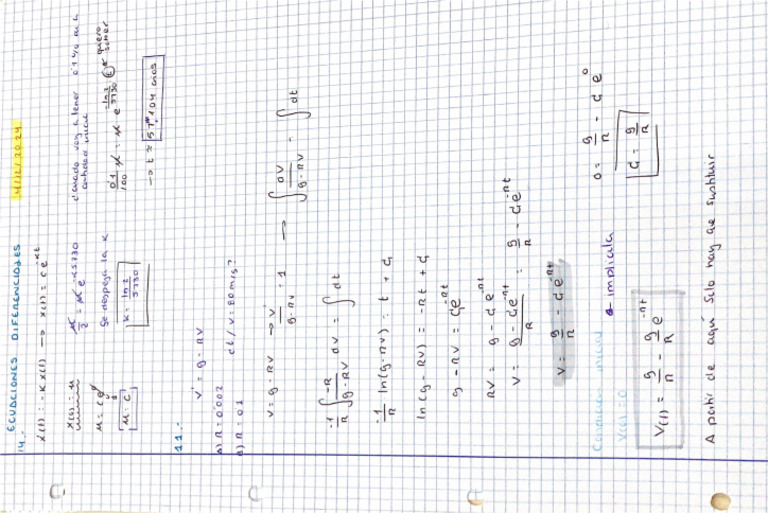 ECUACIONES DIFERENCIALES 4/12/2024
14.-
x'(t) = -k x(t) → x(t) = c e^-kt
x(0) = M
M = c e^0
M = C
M/2 = M e^-k5730
Se despeja la k
k = ln 2/5730
cuando voy a tener 0'1% de la cantidad inicial
0'1/100 M = M · e^(-ln 2/5730 t) quiero saber
→ t ≈ 57.104 años
11.-
v' = g - Rv
a) R = 0'002
b) R = 0'1
ct/ v = 80 m/s?
v' = g - Rv → v'/(g - Rv) = 1 → ∫ dv/(g - Rv) = ∫ dt
-1/R ∫ -R/(g - Rv) dv = ∫ dt
-1/R ln(g - Rv) = t + C1
ln(g - Rv) = -Rt + C1
g - Rv = C1e^-Rt
Rv = g - C1e^-Rt
v = (g - C1e^-Rt)/R = g/R - C1e^-Rt
v = g/R - C1e^-Rt
Condición inicial implícita
v(0) = 0
0 = g/R - C1 e^0
C1 = g/R
v(t) = g/R - g/R e^-Rt
A partir de aquí solo hay que sustituir